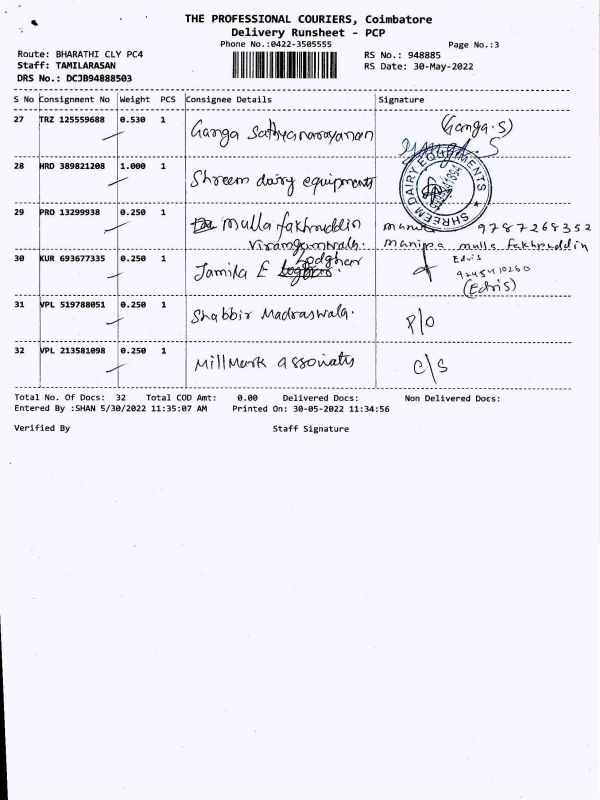 THE PROFESSIONAL COURIERS, Coimbatore
Delivery Runsheet - PCP
Phone No.:0422-3505555
Page No.:3
Route: BHARATHI CLY PC4
RS No.: 948885
Staff: TAMILARASAN
RS Date: 30-May-2022
DRS No.: DCJB94888503
S No Consignment No Weight PCS Consignee Details Signature
27 TRZ 125559688 0.530 1 Ganga Sathyanarayanan (Ganga.S)
28 HRD 389821208 1.000 1 Shreem dairy equipments
SHREEM DAIRY EQUIPMENTS
29 PRO 13299938 0.250 1 Mulla fakhruddin 9787268352
Viramgamwala. mulla fakhruddin
30 KUR 693677335 0.250 1 Jamila E Lodgher Edris
9245410260
(Edris)
31 VPL 519788051 0.250 1 Shabbir Madraswala. P/O
32 VPL 213581098 0.250 1 Millmark associats C/S
Total No. Of Docs: 32 Total COD Amt: 0.00 Delivered Docs: Non Delivered Docs:
Entered By :SHAN 5/30/2022 11:35:07 AM Printed On: 30-05-2022 11:34:56
Verified By Staff Signature